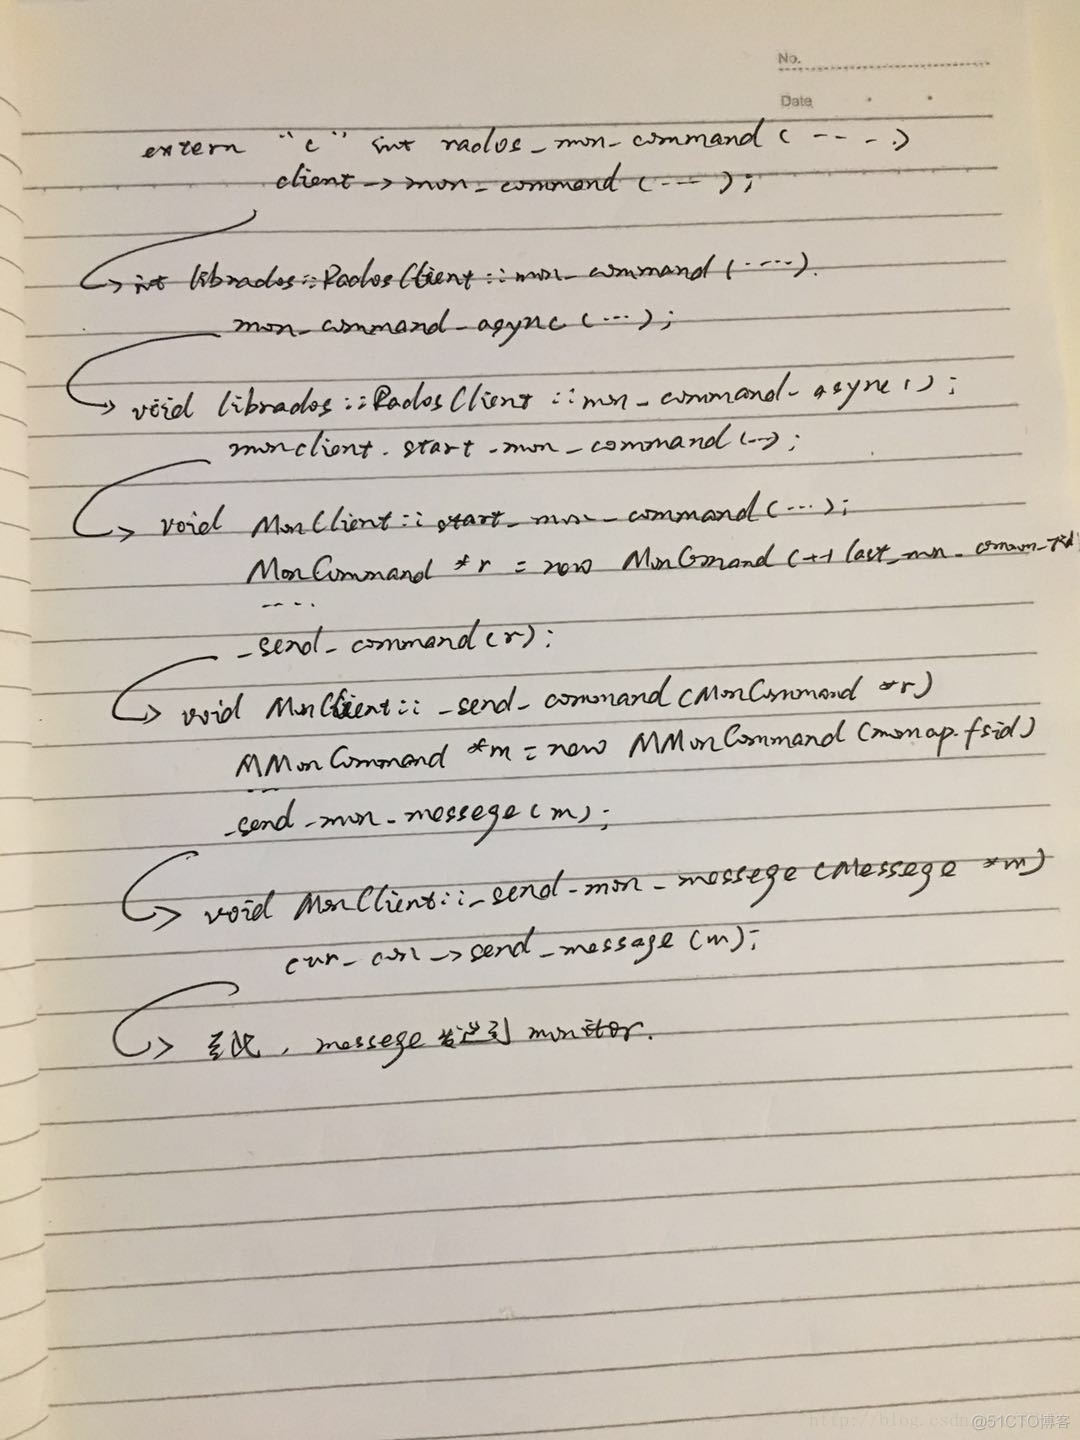 No.
Date
extern "c" int rados_mon_command (----)
client->mon_command (---);
int librados::RadosClient::mon_command (····).
mon_command_async (···);
void librados::RadosClient::mon_command_async ();
monclient.start_mon_command (--);
void MonClient::start_mon_command (···);
MonCommand *r = new MonCommand (++last_mon_
....
_send_command (r);
void MonClient::_send_command (MonCommand *r)
MMonCommand *m = new MMonCommand (monap.fsid)
...
_send_mon_messege (m);
void MonClient::_send_mon_messege (Messege *m)
cur_con->send_message (m);
至此, messege 发送到 monitor.
http://blog.csdn @51CTO博客